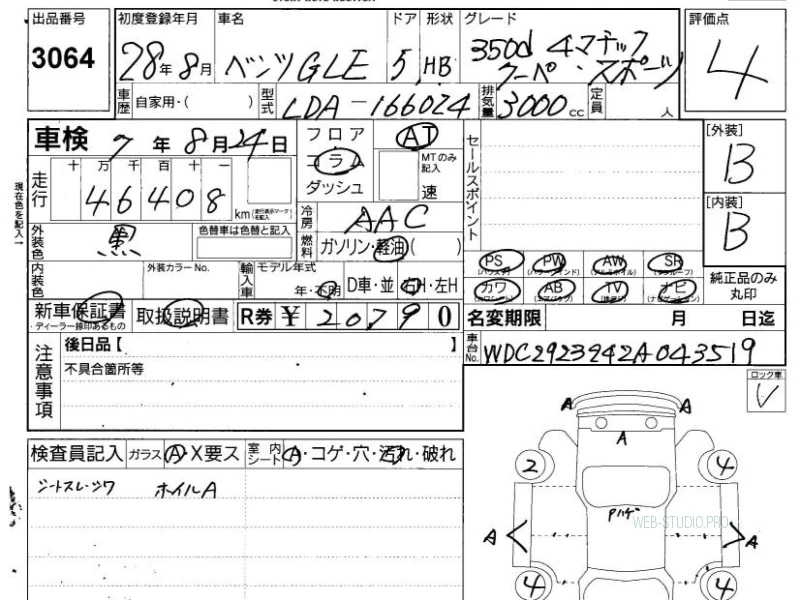 出品番号 初度登録年月 車名 ドア 形状 グレード 評価点
3064 28年 8月 ベンツGLE 5 HB 350d 4マチック 4
クーペ・スポーツ
車歴 自家用・( ) 型式 LDA-166024 排気量 3000cc 定員 人
車検 7年 8月24日 フロア AT セールスポイント [外装]
十 万 千 百 十 一 コラム MTのみ記入 B
走行 46408 km ダッシュ 速 [内装]
現在色を記入 冷房 AAC B
外装色 黒 色替車は色替と記入 燃料 ガソリン・軽油( ) PS PW AW SR
内装色 外装カラーNo. 輸入車 モデル年式 年・不明 D車・並 右H・左H カワ AB TV ナビ 純正品のみ丸印
新車保証書 取扱説明書 R券 ¥ 20790 名変期限 月 日迄
・ディーラー捺印あるもの
注意事項 後日品【 】 車台No. WDC2923242A043519
不具合箇所等 ロック車
V
検査員記入 ガラス A・X要ス 室内シート A・コゲ・穴・汚れ・破れ
シートスレ・シワ ホイルA
A A
A
2 4
Pハゲ
WEB-STUDIO.PRO
A A
4 4